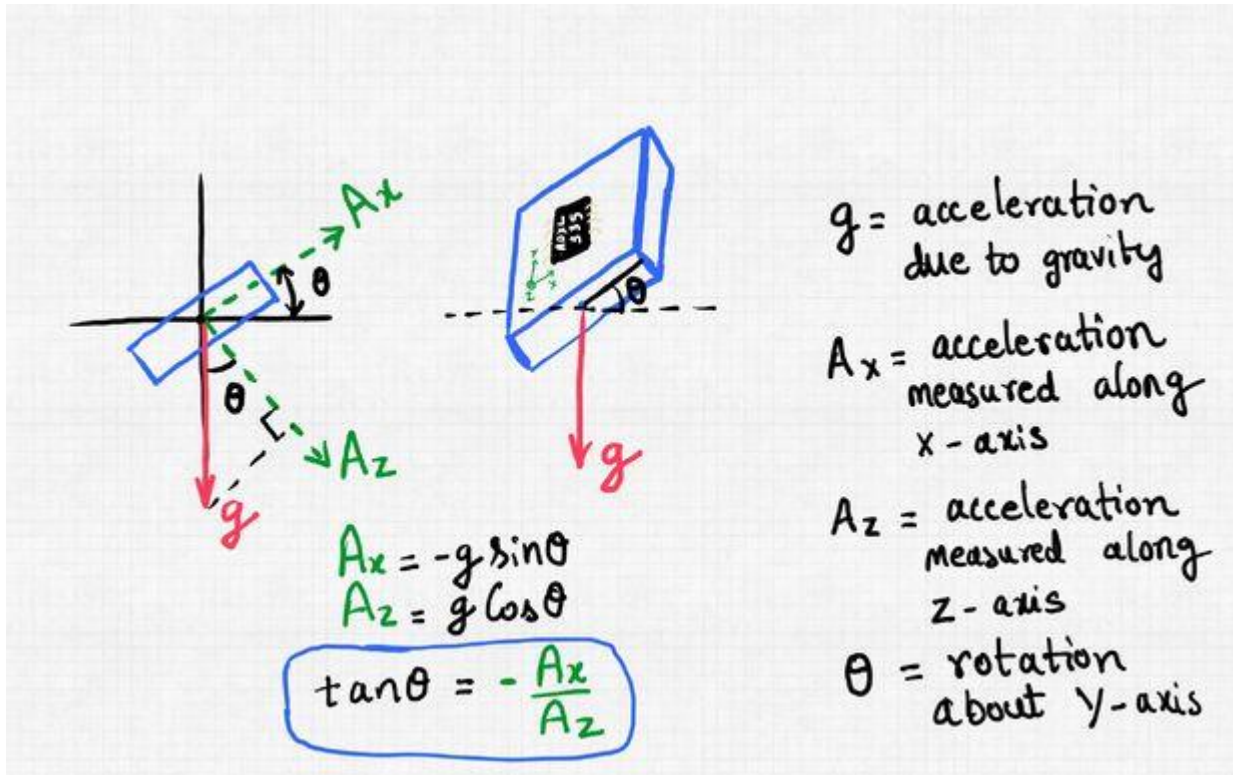 Ax
θ
θ
Az
g
Ax = -g sinθ
Az = g Cosθ
tanθ = - Ax/Az
ADXL
335
Y
X
Z
θ
g
g = acceleration
due to gravity
Ax = acceleration
measured along
x-axis
Az = acceleration
measured along
z-axis
θ = rotation
about y-axis